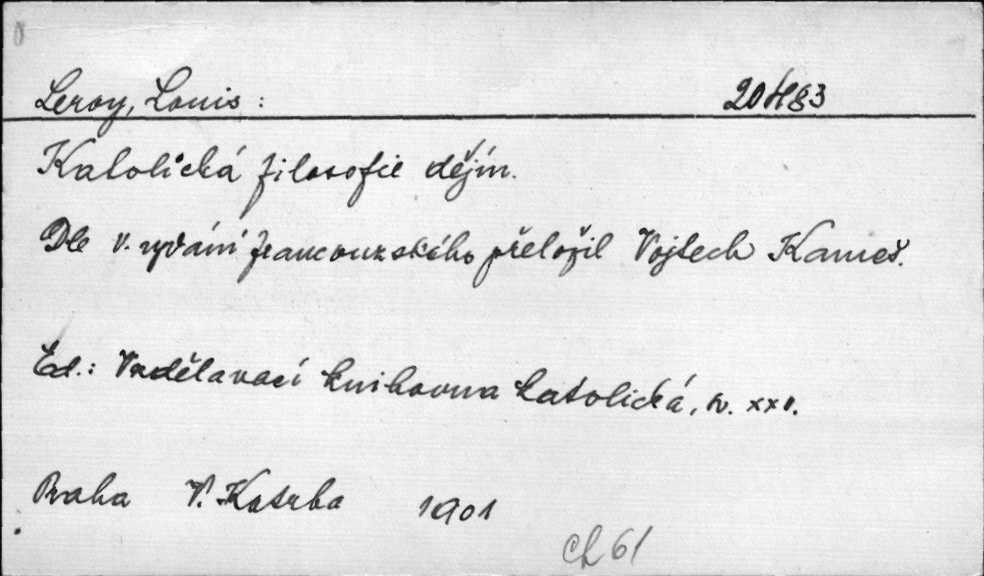 Leroy, Louis : 20 H 83
Katolická filosofie dějin.
Dle V. vydání francouzského přeložil Vojtech Kameš.
Ed.: Vzdělavací knihovna katolická, sv. XXI.
Praha V. Kotrba 1901
Ch 61